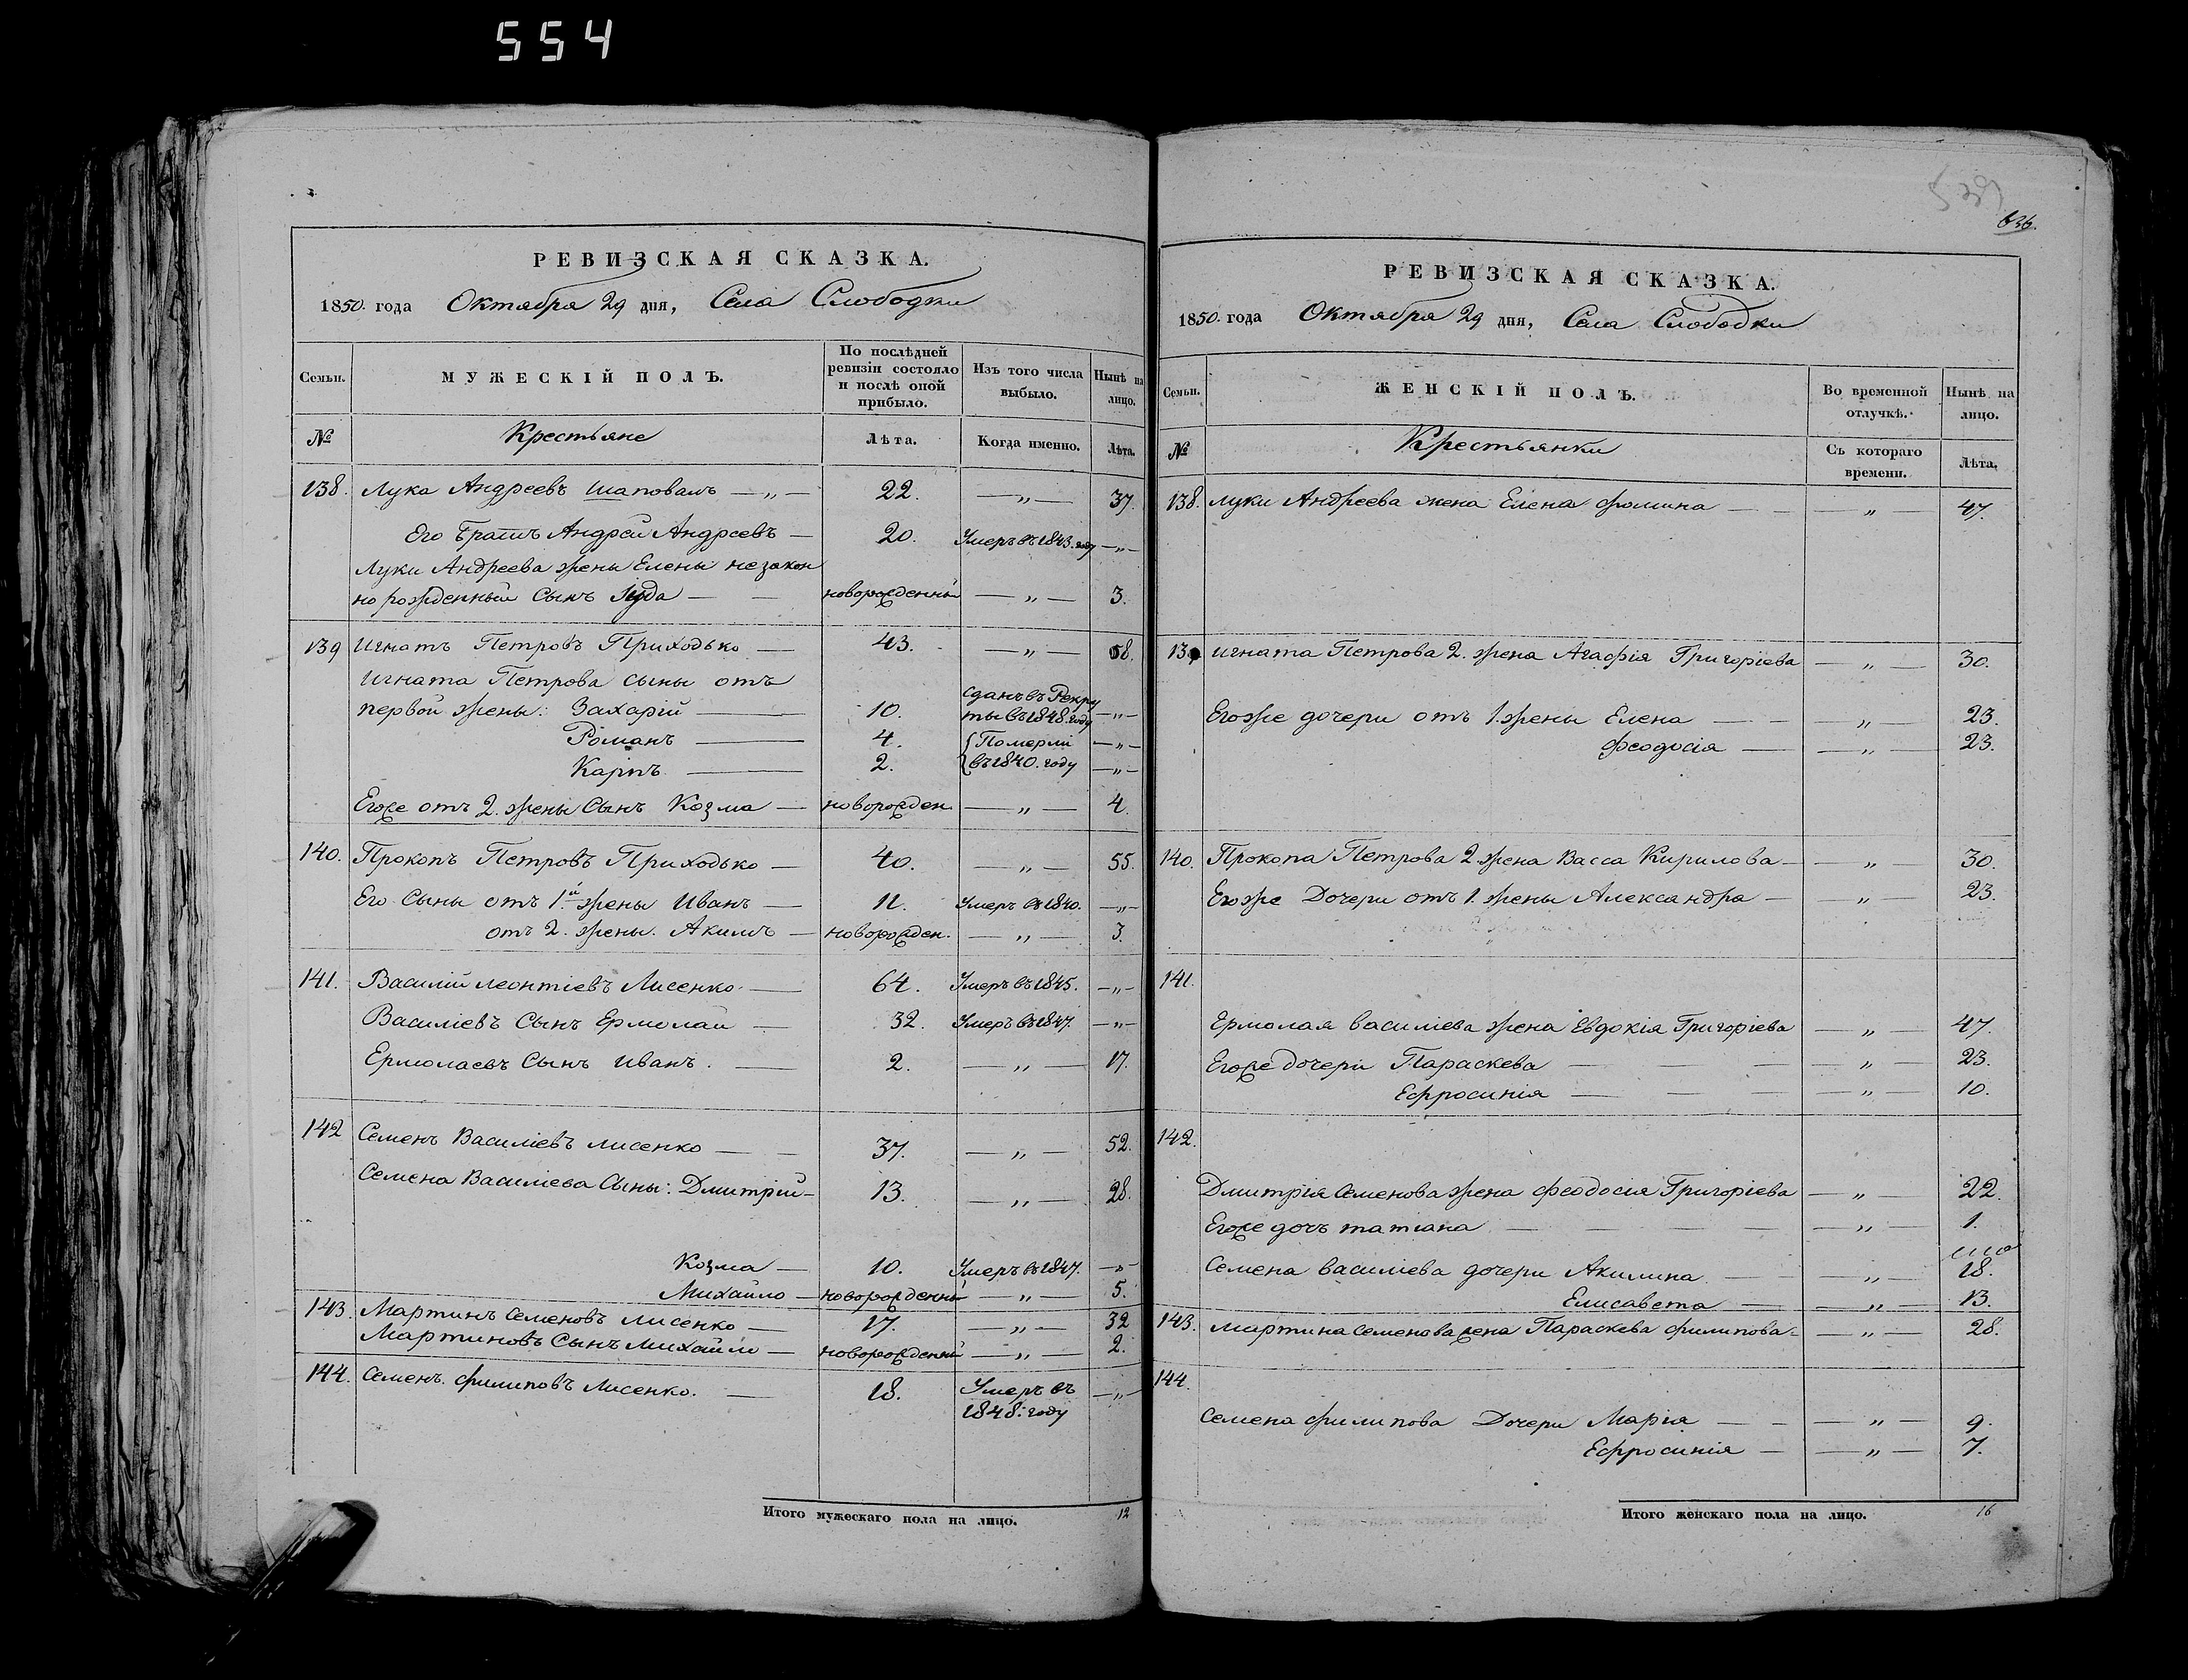 554
РЕВИЗСКАЯ СКАЗКА.
1850. года Октября 29 дня, Села Слободки
Семьи. МУЖЕСКІЙ ПОЛЪ. По послѣдней ревизіи состояло и послѣ оной прибыло. Изъ того числа выбыло. Нынѣ на лицо.
№ Крестьяне Лѣта. Когда именно. Лѣта.
138. Лука Андреевъ Шаповалъ — „ — 22. — „ — 37.
Его Братъ Андрей Андреевъ — 20. Умеръ въ 1843. году — „ —
Луки Андреева жены Елены незакон
но рожденный Сынъ Іуда — — новорожденный — „ — 3.
139 Игнатъ Петровъ Приходько — 43. — „ — 58.
Игната Петрова сыны отъ
первой жены: Захарій — 10. сданъ въ Рекру
ты въ 1848. году — „ —
Романъ — 4. { Померли — „ —
Карпъ — 2. { въ 1840. году — „ —
Егоже отъ 2. жены Сынъ Козма — новорожден. — „ — 4.
140. Прокопъ Петровъ Приходько — 40. — „ — 55.
Его Сыны отъ 1.й жены Иванъ — 11. Умеръ въ 1840. — „ —
отъ 2. жены. Акимъ — новорожден. — „ — 3.
141. Василій Леонтіевъ Лисенко — 64. Умеръ въ 1845. — „ —
Василіевъ Сынъ Ермолай — 32. Умеръ въ 1847. — „ —
Ермолаевъ Сынъ Иванъ. — 2. — „ — 17.
142 Семенъ Василіевъ Лисенко — — 37. — „ — 52.
Семена Василіева Сыны: Дмитрій — 13. — „ — 28.
Козма — 10. Умеръ въ 1847. — „ —
Михайло — новорожденный — „ — 5.
143. Мартинъ Семеновъ Лисенко — 17. — „ — 32
Мартиновъ Сынъ Михайло — новорожденный — „ — 2.
144. Семенъ Филиповъ Лисенко. — 18. Умеръ въ — „ —
1848. году
Итого мужескаго пола на лицо. 12
539
636.
РЕВИЗСКАЯ СКАЗКА.
1850. года Октября 29 дня, Села Слободки
Семьи. ЖЕНСКІЙ ПОЛЪ. Во временной отлучкѣ. Нынѣ на лицо.
№ Крестьянки Съ котораго времени. Лѣта.
138. Луки Андреева жена Елена Фомина — — „ — 47.
139 Игната Петрова 2. жена Агафія Григоріева — „ — 30.
Егоже дочери отъ 1. жены Елена — — „ — 23.
Феодосія — — „ — 23.
140. Прокопа Петрова 2. жена Васса Кирилова — — „ — 30.
Егоже Дочери отъ 1. жены Александра — — „ — 23.
141.
Ермолая Василіева жена Евдокія Григоріева — „ — 47.
Егоже дочери Параскева — — — „ — 23.
Ефросинія — — — „ — 10.
142.
Дмитрія Семенова жена Феодосія Григоріева — „ — 22.
Егоже дочь Татіана — — — — „ — 1.
Семена Василіева дочери Акилина — — „ — 18.
Елисавета — — „ — 13.
143. Мартина Семенова жена Параскева Филипова — — „ — 28.
144.
Семена Филипова Дочери Марія — — — „ — 9.
Ефросинія — — „ — 7.
Итого женскаго пола на лицо. 16